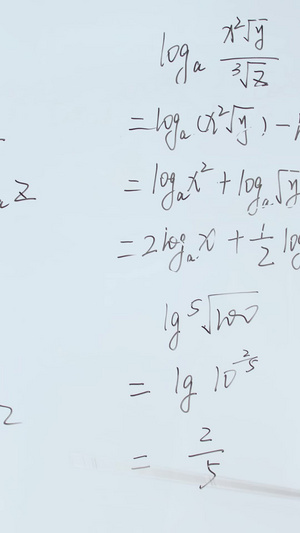 logₐ x²√y / ³√z
= logₐ(x²√y) −
= logₐx² + logₐ√y
ₐ z
= 2logₐx + 1/2 log
lg ⁵√100
= lg 10^(2/5)
= 2/5